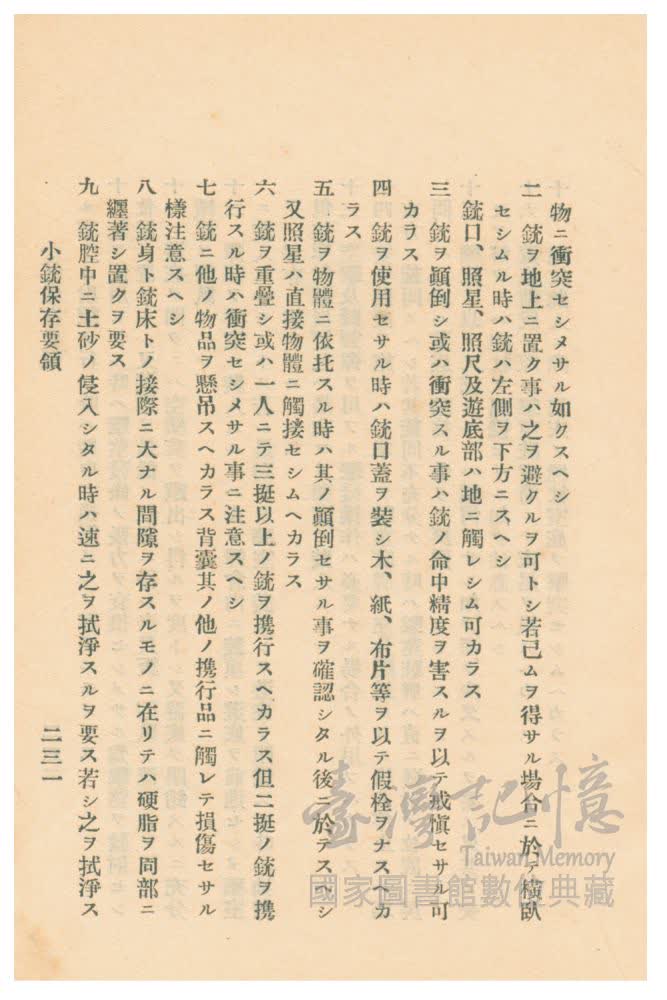 物ニ衝突セシメサル如クスヘシ
二 銃ヲ地上ニ置ク事ハ之ヲ避クルヲ可トシ若己ムヲ得サル場合ニ於テ橫臥
セシムル時ハ銃ハ左側ヲ下方ニスヘシ
銃口、照星、照尺及遊底部ハ地ニ觸レシム可カラス
三 銃ヲ顚倒シ或ハ衝突スル事ハ銃ノ命中精度ヲ害スルヲ以テ戒愼セサル可
カラス
四 銃ヲ使用セサル時ハ銃口蓋ヲ裝シ木、紙、布片等ヲ以テ假栓ヲナスヘカ
ラス
五 銃ヲ物體ニ依托スル時ハ其ノ顚倒セサル事ヲ確認シタル後ニ於テスヘシ
又照星ハ直接物體ニ觸接セシムヘカラス
六 銃ヲ重疊シ或ハ一人ニテ三挺以上ノ銃ヲ携行スヘカラス但二挺ノ銃ヲ携
行スル時ハ衝突セシメサル事ニ注意スヘシ
七 銃ニ他ノ物品ヲ懸吊スヘカラス背囊其ノ他ノ携行品ニ觸レテ損傷セサル
樣注意スヘシ
八 銃身ト銃床トノ接際ニ大ナル間隙ヲ存スルモノニ在リテハ硬脂ヲ同部ニ
纒著シ置クヲ要ス
九 銃腔中ニ土砂ノ侵入シタル時ハ速ニ之ヲ拭淨スルヲ要ス若シ之ヲ拭淨ス
小銃保存要領
二三一
臺灣記憶
Taiwan Memory
國家圖書館數位典藏